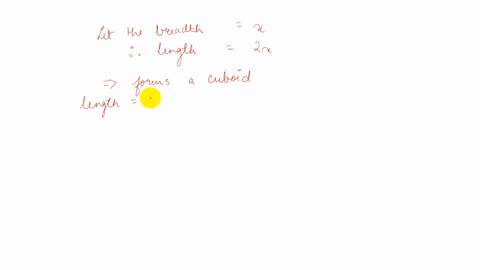 Let the breadth = x
∴ length = 2x
⇒ forms a cuboid
length =